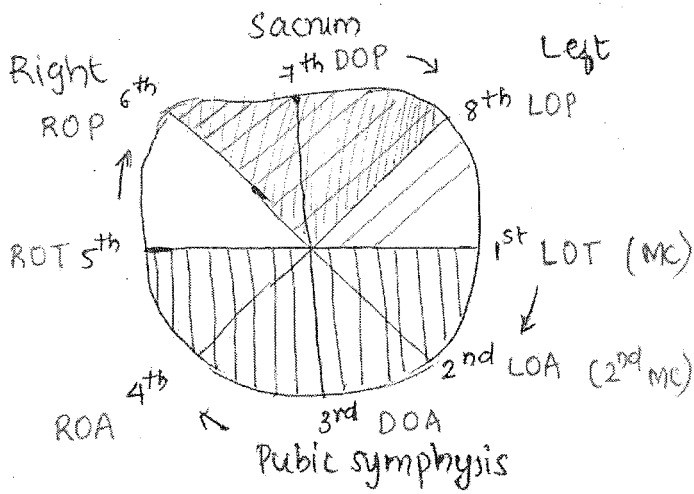 Sacrum
Right
Left
6th
7th DOP
8th LOP
ROP
ROT 5th
1st LOT (MC)
2nd LOA (2nd MC)
4th
ROA
3rd DOA
Pubic symphysis